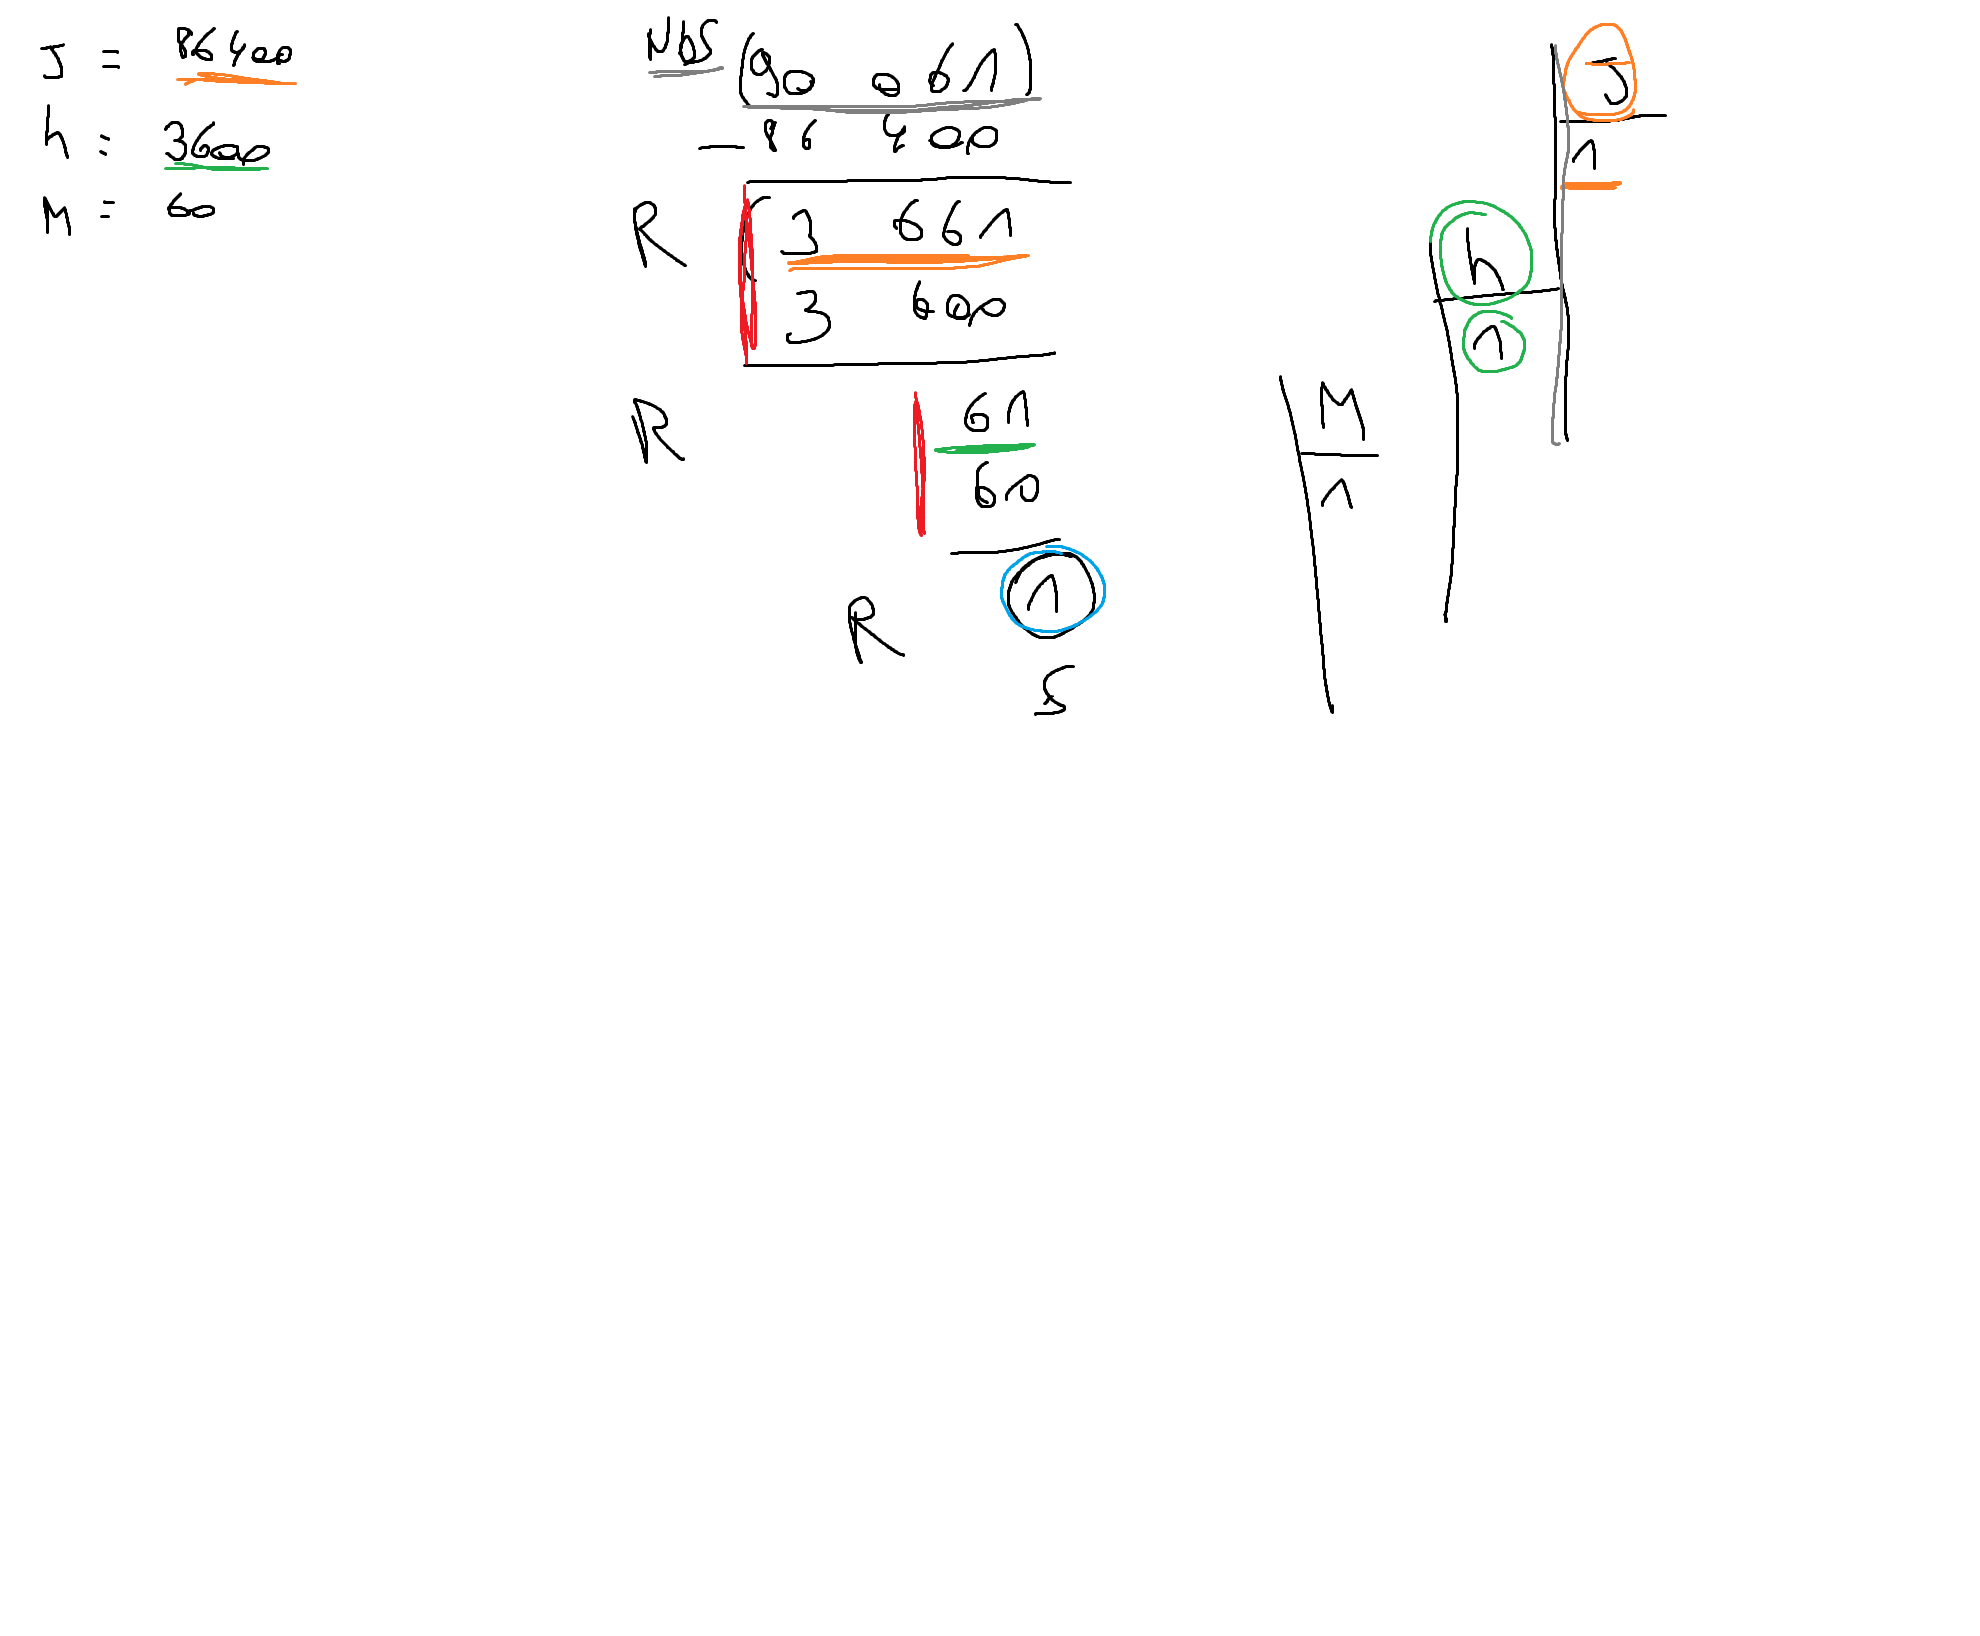 J = 86400
h = 3600
M = 60
NbS (90 061)
- 86 400
R (3 661
3 600
R 61
60
R 1
S
J
1
h
1
M
1